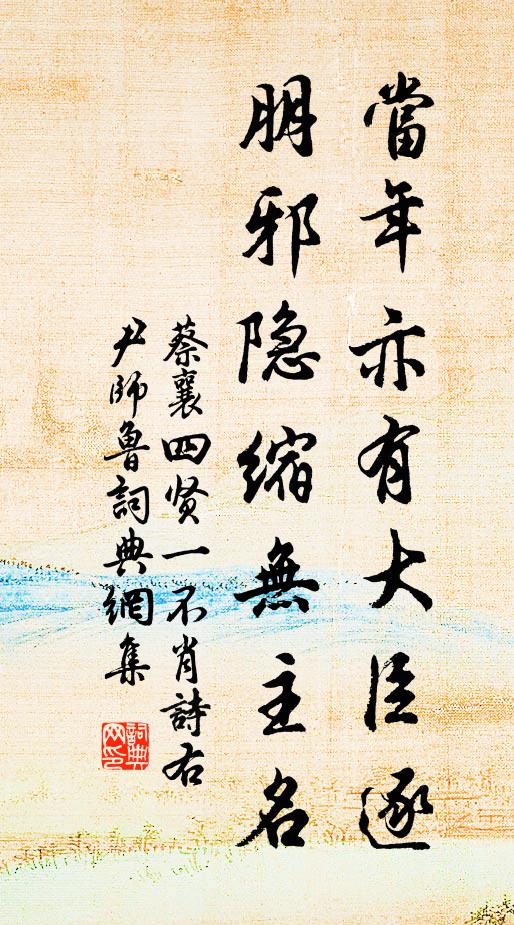 當年亦有大臣逐
朋邪隐縮無主名
蔡襄四贤一不肖詩右
尹師魯詞典網集
詞典
网印